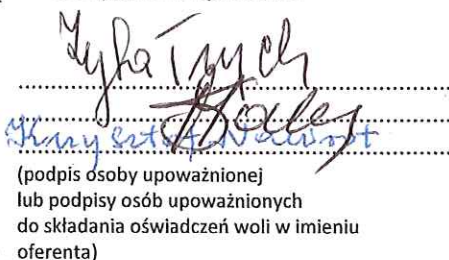 ........................................
........................................
Krzysztof Nawrot
(podpis osoby upoważnionej
lub podpisy osób upoważnionych
do składania oświadczeń woli w imieniu
oferenta)